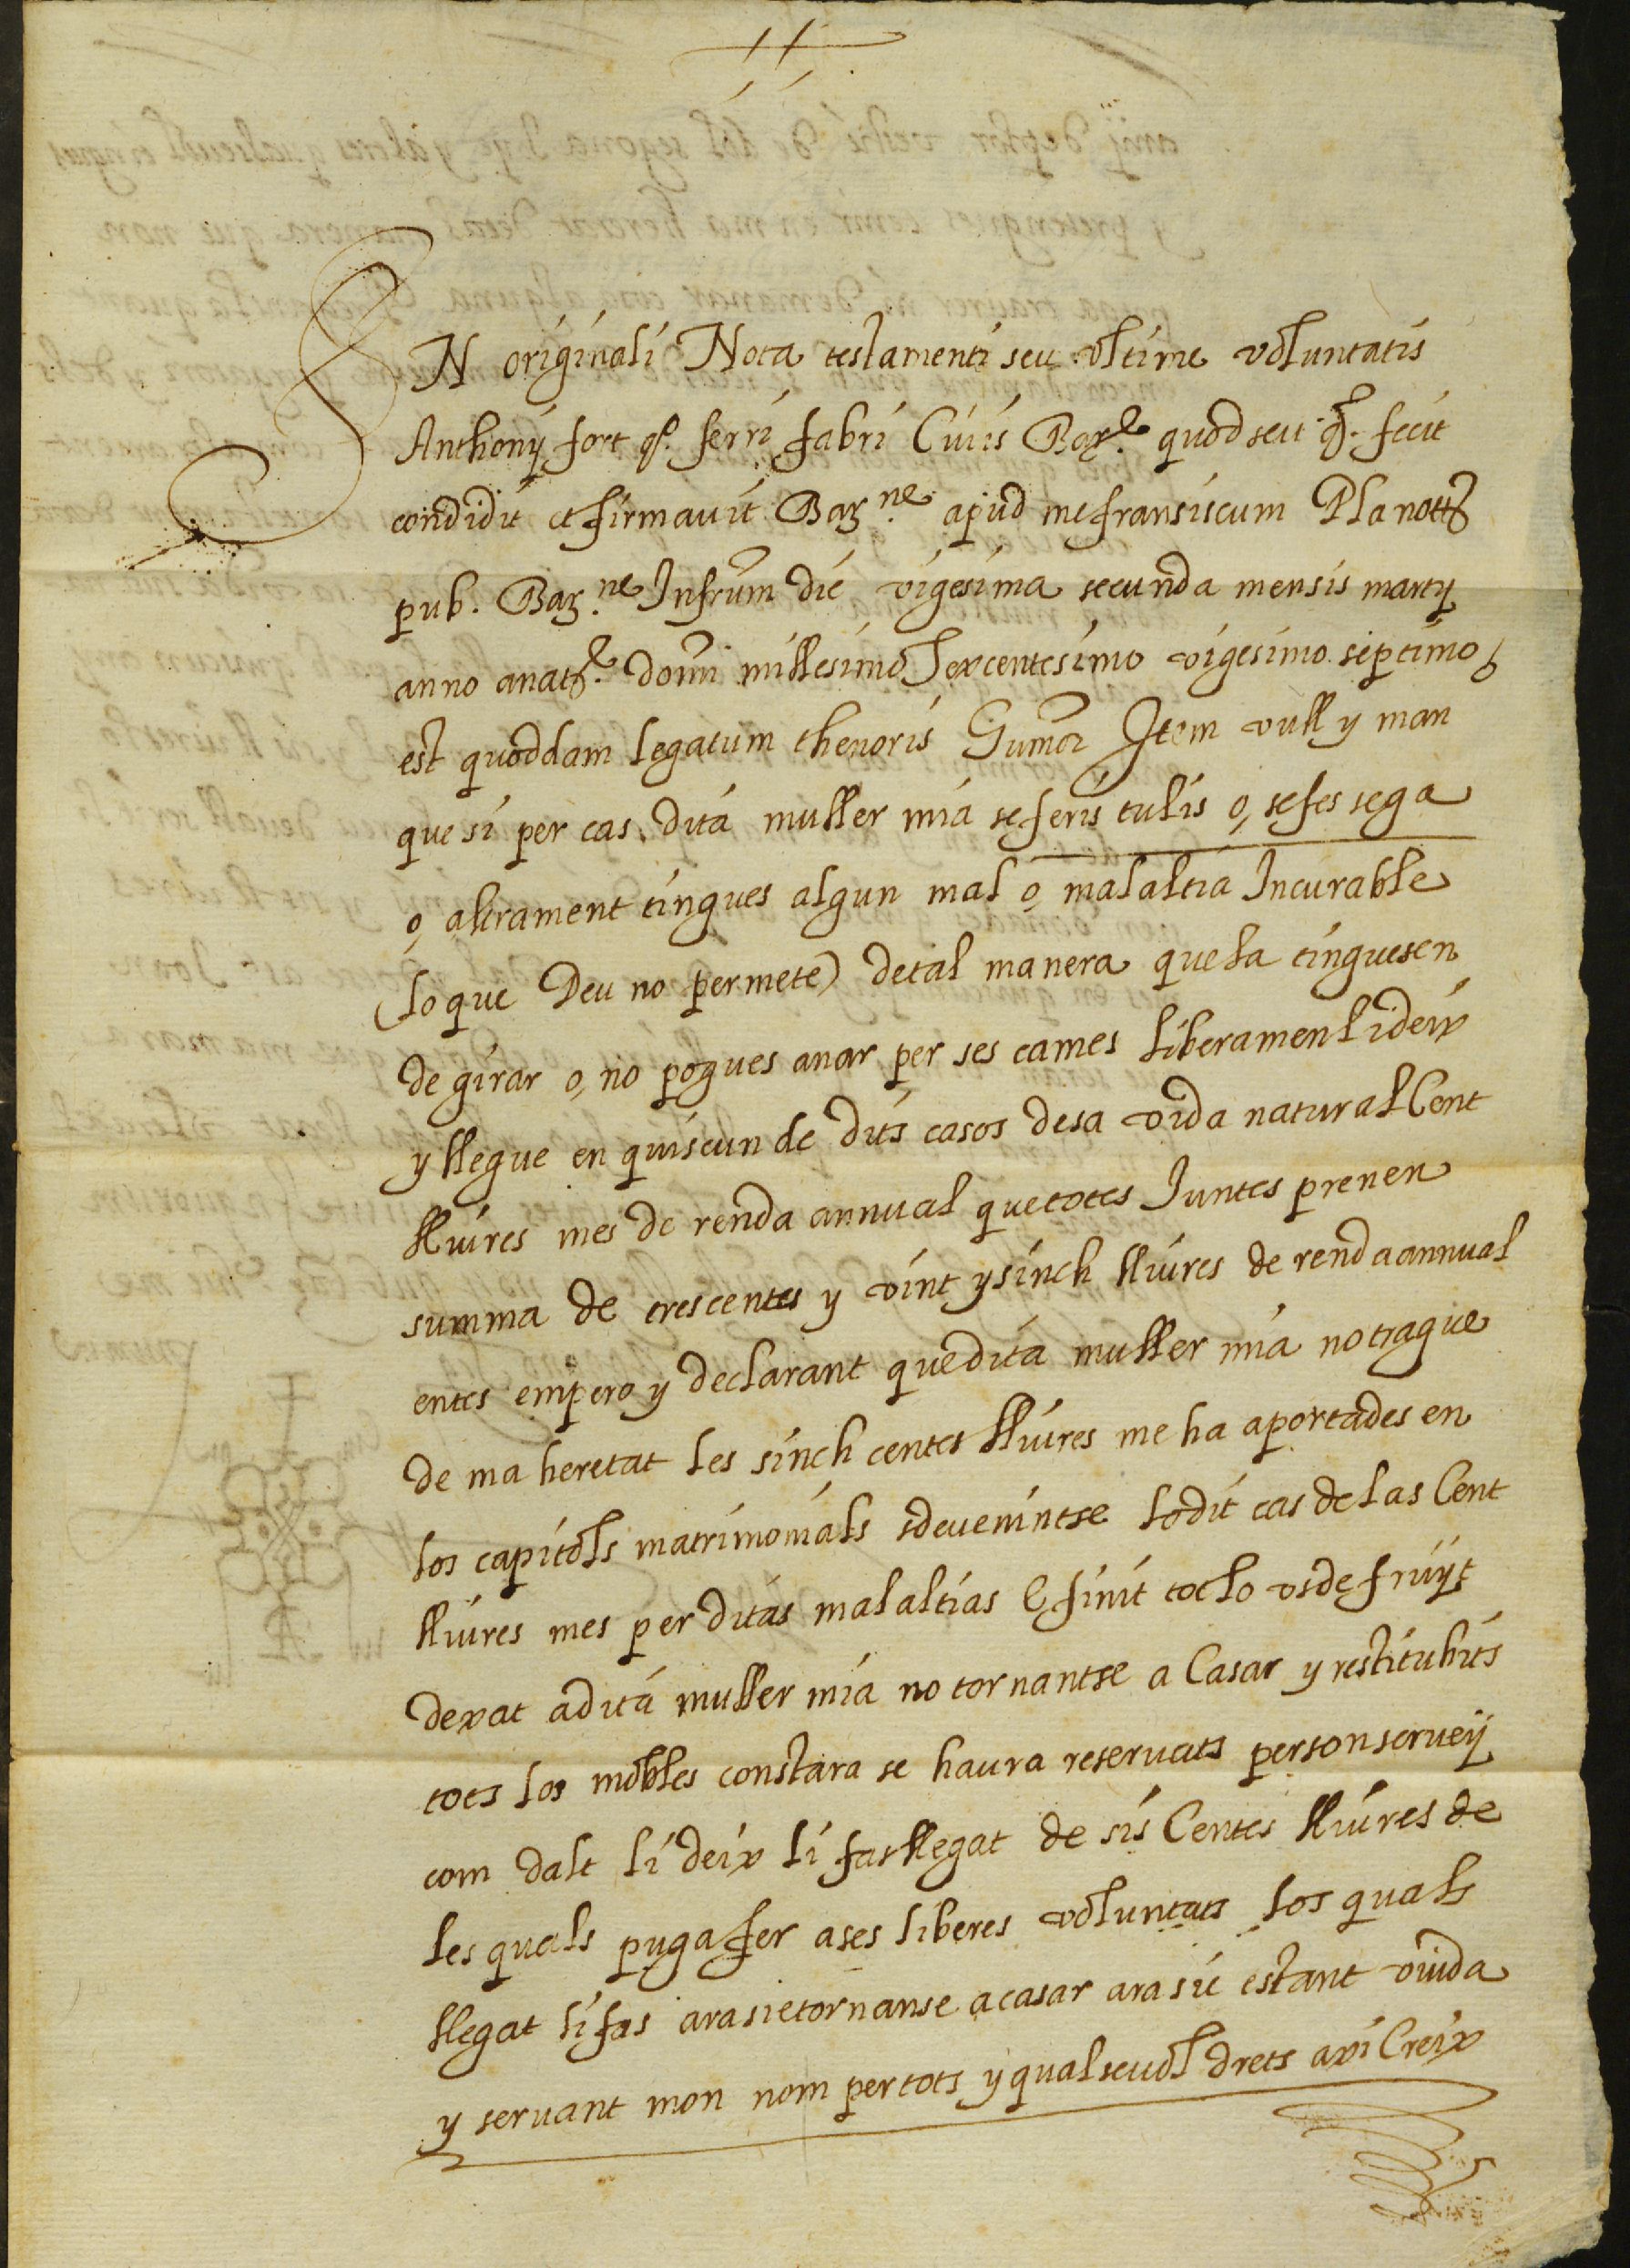 IN originali Nota testamenti seu ultime voluntatis
Anthonij fort qº. ferri fabri Civis Barᵉ. quod seu q. fecit
condidit et firmavit Barⁿᵉ. apud me fransiscum Pla nottm
pub. Barⁿᵉ. Infrum die vigesima secunda mensis martij
anno anatᵉ. domi millesimo sexcentesimo vigesimo septimo
est quoddam legatum thenoris Item vull y man
que si per cas dita muller mia se feris tulis o, se fes sega
o, altrament tingues algun mal o, malaltia Incurable
(lo que Deu no permete) de tal manera que la tinguesen
de girar o, no pogues anar per ses cames liberament li deix
y llegue en quiscun de dits casos de sa vida natural Cent
lliures mes de renda annual que totes Juntes prenen
summa de trescentes y vint y sinch lliures de renda annual
entes empero y declarant que dita muller mia no trague
de ma heretat les sinch centes lliures me ha aportades en
los capitols matrimonials sdevenintse lo dit cas de las Cent
lliures mes per ditas malaltias E finit tot lo usdefruyt
dexat a dita muller mia no tornantse a Casar y restituhits
tots los mobles constara se haura reservats per son serveij
com dalt li deix li fas llegat de sis Centes lliures de
les quals puga fer a ses liberes voluntats los quals
llegat li fas ara sie tornanse a casar ara sie estant viuda
y servant mon nom per tots y qualsevol drets axi Creix